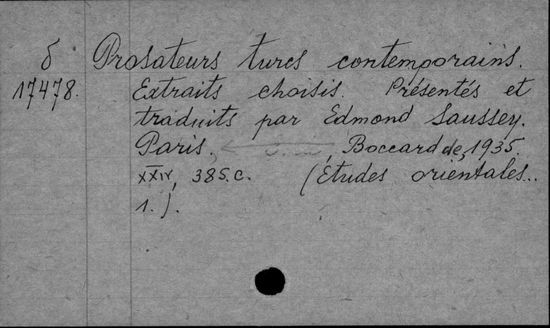 δ Prosateurs turcs contemporains.
17478. Extraits choisis. Présentés et
traduits par Edmond Saussey.
Paris, Boccard de, 1935
XXIV, 385.c. (Études orientales..
1.).